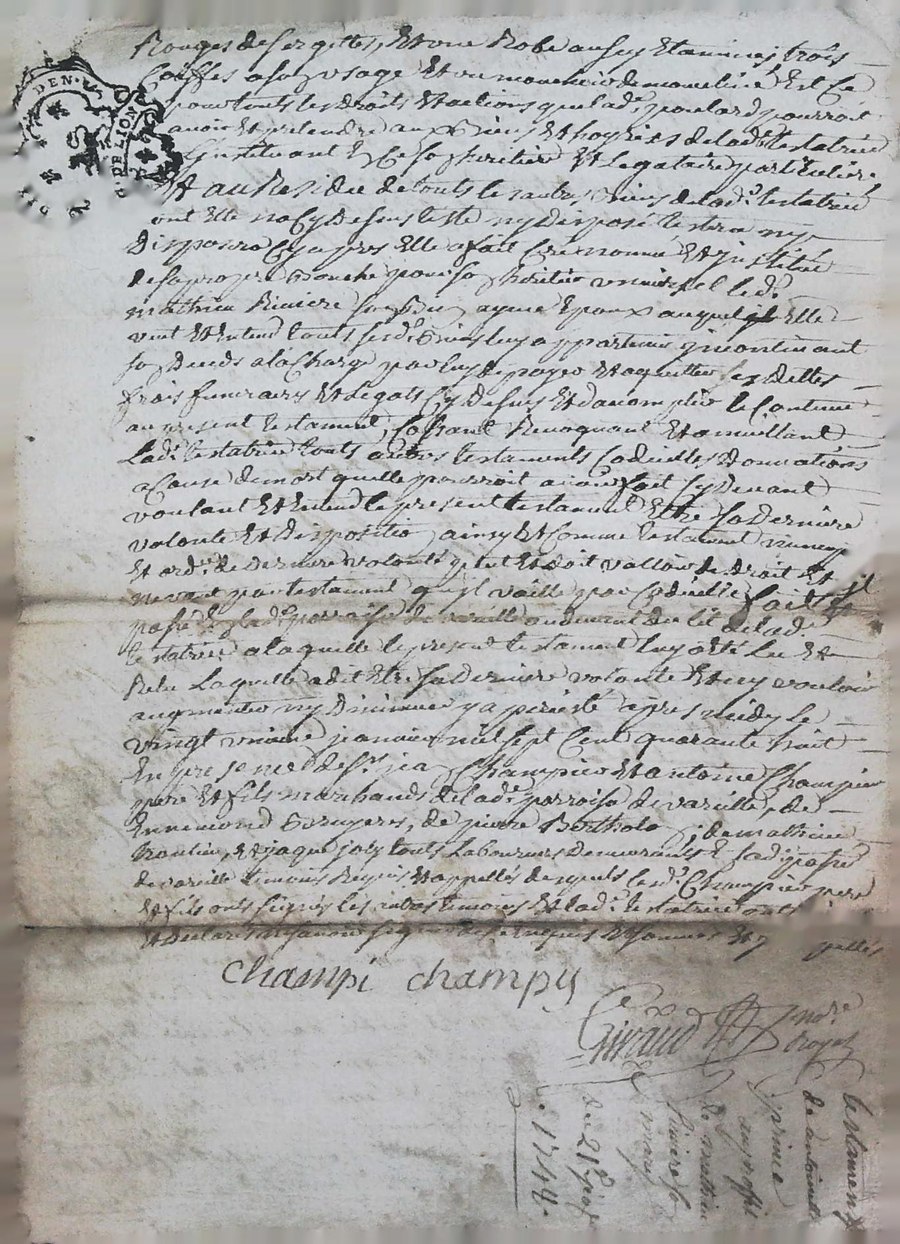 Rouges de sergette, Et une Robe aussy Etamine, trois
Coiffes a son usage Et un mouchoir de mouseline, Est Ce
pour touts les droits Et actions que lad.e poulard pourroit
avoir Et pretendre aux Biens Et hoyries de lad.e testatrice
L'instituant En Ce son heritiere Et Legataire particuliere
Et au Residu de touts les autres Biens de lad.e testatrice
dont Elle na Cy Desus testé ny Disposé testera ny
Disposera Cy apres Elle a fait Créé nommé Et institué
de sa propre Bouche pour son heritier universel led.
mathieu Riviere son bien aymé Epoux auquel Elle
veut Et Entend touts sesd. Biens luy appartenir incontinant
son Deceds a la Charge par luy de payer Et aquitter ses Dettes
frais funeraires Et Legats Cy Desus Et d'accomplir le Contenu
au present testament, Cassant Revoquant Et annullant
Lad.e testatrice touts autres testaments Codicilles Donnations
a Cause de mort quelle pourroit avoir fait Cy Devant
voulant Et Entend le present testament Etre sa Derniere
volonté Et Disposition ainsy Et Comme testament nuncup
Et ord.re de Derniere volonté peut Et doit valloir de droit Et
ne vaut par testament qu'il vaille par Codicille fait Et
passé En lad.e parroisse de vareille au devant du lit de lad.e
testatrice a laquelle le present testament luy a été Lu Et
Relu Laquelle a dit Etre sa Derniere volonté Et ny vouloir
augmenter ny Diminuer y a persisté apres midy le
vingt unieme janvier mil sept Cent quarante huit
En presence de S.rs jean Champier Et antoine Champier
pere Et fils marchands de lad.e parroisse de vareille, de
Ennemond Bruyeres, de pierre Bertholo, de mathieu
Et jaque joly touts Laboureurs Demeurants En lad.e parr.e
de vareille temoins Requis Et appellés desquels lesd. Champier pere
Et fils onts signés les autres temoins Et lad.e testatrice onts
Et Declaré ne savoir signer de ce Enquis Et sommés Et pellés
champi champy
Giraud
no.re
Royal
testament
de antoinette
prime
au proffit
de mathieu
Riviere son
mary
du 21e janv
1748.